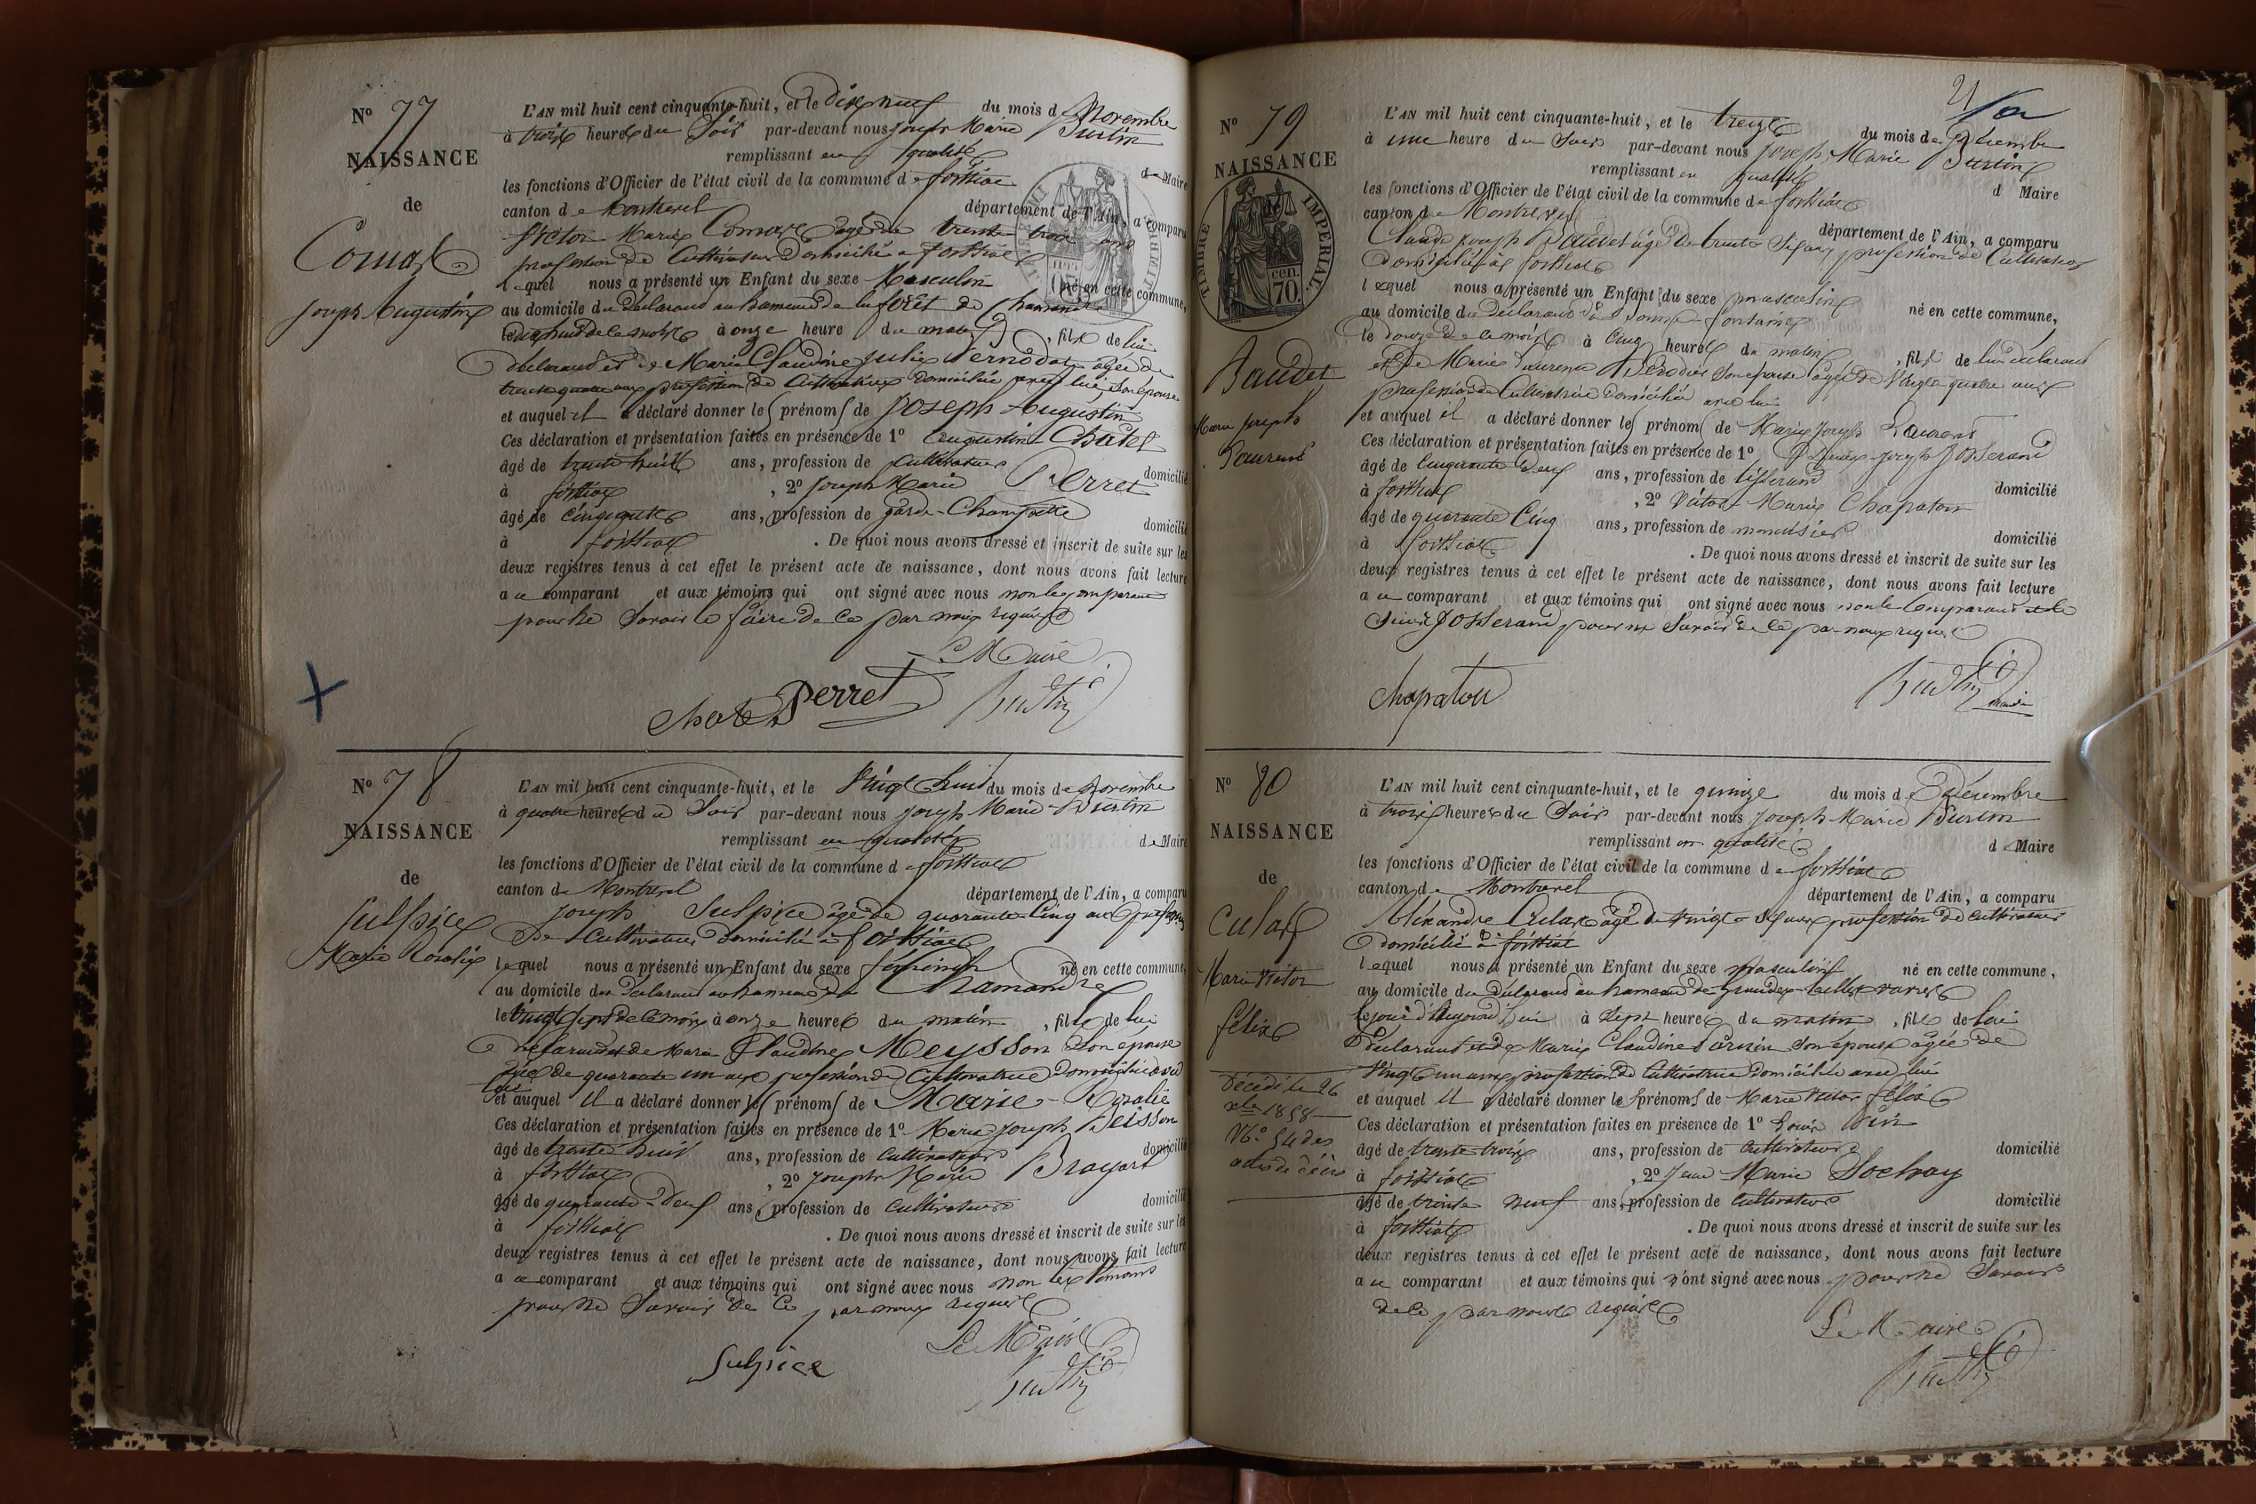 N° 77
NAISSANCE
de
Comas
Joseph Augustin
L'AN mil huit cent cinquante-huit, et le dix neuf du mois de Novembre
à trois heures du Soir par-devant nous Joseph Marie Burtin
remplissant en qualité de Maire
les fonctions d'Officier de l'état civil de la commune de foissiat
canton de Montrevel département de l'Ain, a comparu
Victor Marie Comas âgé de trente trois ans
profession de Cultivateur domicilié à foissiat
lequel nous a présenté un Enfant du sexe Masculin né en cette commune,
au domicile du déclarant au hameau de la forêt de Chamandre
le dix huit de ce mois à onze heures du matin, fils de lui
déclarant et de Marie Claudine Julie âgée de
trente quatre ans profession de Cultivatrice domiciliée avec lui, son épouse
et auquel il a déclaré donner les prénoms de Joseph Augustin
Ces déclaration et présentation faites en présence de 1° Augustin Chatel
âgé de trente huit ans, profession de Cultivateur domicilié
à foissiat, 2° Joseph Marie Perret
âgé de cinquante ans, profession de garde-Champêtre domicilié
à foissiat. De quoi nous avons dressé et inscrit de suite sur les
deux registres tenus à cet effet le présent acte de naissance, dont nous avons fait lecture
a ce comparant et aux témoins qui ont signé avec nous non le comparant
pour ne Savoir le faire de ce par nous requis
Le Maire
Chatel Perret Burtin
N° 78
NAISSANCE
de
Sulpice
Marie Rosalie
L'AN mil huit cent cinquante-huit, et le Vingt huit du mois de Novembre
à quatre heures du Soir par-devant nous Joseph Marie Burtin
remplissant en qualité de Maire
les fonctions d'Officier de l'état civil de la commune de foissiat
canton de Montrevel département de l'Ain, a comparu
Joseph Sulpice âgé de quarante Cinq ans profession
de Cultivateur domicilié à foissiat
lequel nous a présenté un Enfant du sexe féminin né en cette commune,
au domicile du déclarant au hameau de Chamandre
le Vingt Sept de ce mois à onze heures du matin, fille de lui
déclarant et de Marie Claudine Meysson Son épouse
âgée de quarante un ans profession de Cultivatrice domiciliée avec
lui
et auquel il a déclaré donner les prénoms de Marie-Rosalie
Ces déclaration et présentation faites en présence de 1° Marie Joseph Beisson
âgé de trente huit ans, profession de Cultivateur domicilié
à foissiat, 2° Joseph Marie Brayart
âgé de quarante-deux ans, profession de Cultivateur domicilié
à foissiat. De quoi nous avons dressé et inscrit de suite sur les
deux registres tenus à cet effet le présent acte de naissance, dont nous avons fait lecture
a ce comparant et aux témoins qui ont signé avec nous non les témoins
pour ne Savoir de ce par nous requis
Le Maire
Sulpice Burtin
N° 79
NAISSANCE
de
TIMBRE IMPERIAL
70 cen.
Baudet
Marie Joseph
Laurent
L'AN mil huit cent cinquante-huit, et le treize du mois de Décembre
à une heure du Soir par-devant nous Joseph Marie Burtin
remplissant en qualité de Maire
les fonctions d'Officier de l'état civil de la commune de foissiat
canton de Montrevel département de l'Ain, a comparu
Claude Joseph Baudet âgé de trente Six ans profession de Cultivateur
domicilié à foissiat
lequel nous a présenté un Enfant du sexe masculin né en cette commune,
au domicile du déclarant à bonne fontaine
le douze de ce mois à Cinq heures du matin, fils de lui déclarant
et de Marie Laurence Son épouse âgée de Vingt quatre ans
profession de Cultivatrice domiciliée avec lui
et auquel il a déclaré donner les prénoms de Marie Joseph Laurent
Ces déclaration et présentation faites en présence de 1° Joseph Josserand
âgé de Cinquante neuf ans, profession de tisserand domicilié
à foissiat, 2° Victor Marie Chapaton
âgé de quarante Cinq ans, profession de menuisier domicilié
à foissiat. De quoi nous avons dressé et inscrit de suite sur les
deux registres tenus à cet effet le présent acte de naissance, dont nous avons fait lecture
a ce comparant et aux témoins qui ont signé avec nous non le Comparant et le
Sieur Josserand pour ne Savoir de ce par nous requis
Chapaton Burtin Maire
N° 80
NAISSANCE
de
Culas
Marie Victor
félix
Décédé le 26
xbre 1858
N° 54 des
actes de décès
L'AN mil huit cent cinquante-huit, et le quinze du mois de Décembre
à trois heures du Soir par-devant nous Joseph Marie Burtin
remplissant en qualité de Maire
les fonctions d'Officier de l'état civil de la commune de foissiat
canton de Montrevel département de l'Ain, a comparu
Alexandre Culas âgé de vingt Six ans profession de Cultivateur
domicilié à foissiat
lequel nous a présenté un Enfant du sexe masculin né en cette commune,
au domicile du déclarant au hameau de grandes
le jour d'aujourd'hui à Sept heures du matin, fils de lui
déclarant et de Marie Claudine Son épouse âgée de
Vingt un ans profession de Cultivatrice domiciliée avec lui
et auquel il a déclaré donner les prénoms de Marie Victor félix
Ces déclaration et présentation faites en présence de 1° Louis
âgé de trente-trois ans, profession de Cultivateur domicilié
à foissiat, 2° Jean Marie Sochay
âgé de trente neuf ans, profession de Cultivateur domicilié
à foissiat. De quoi nous avons dressé et inscrit de suite sur les
deux registres tenus à cet effet le présent acte de naissance, dont nous avons fait lecture
a ce comparant et aux témoins qui n'ont signé avec nous pour ne Savoir
de ce par nous requis
Le Maire
Burtin